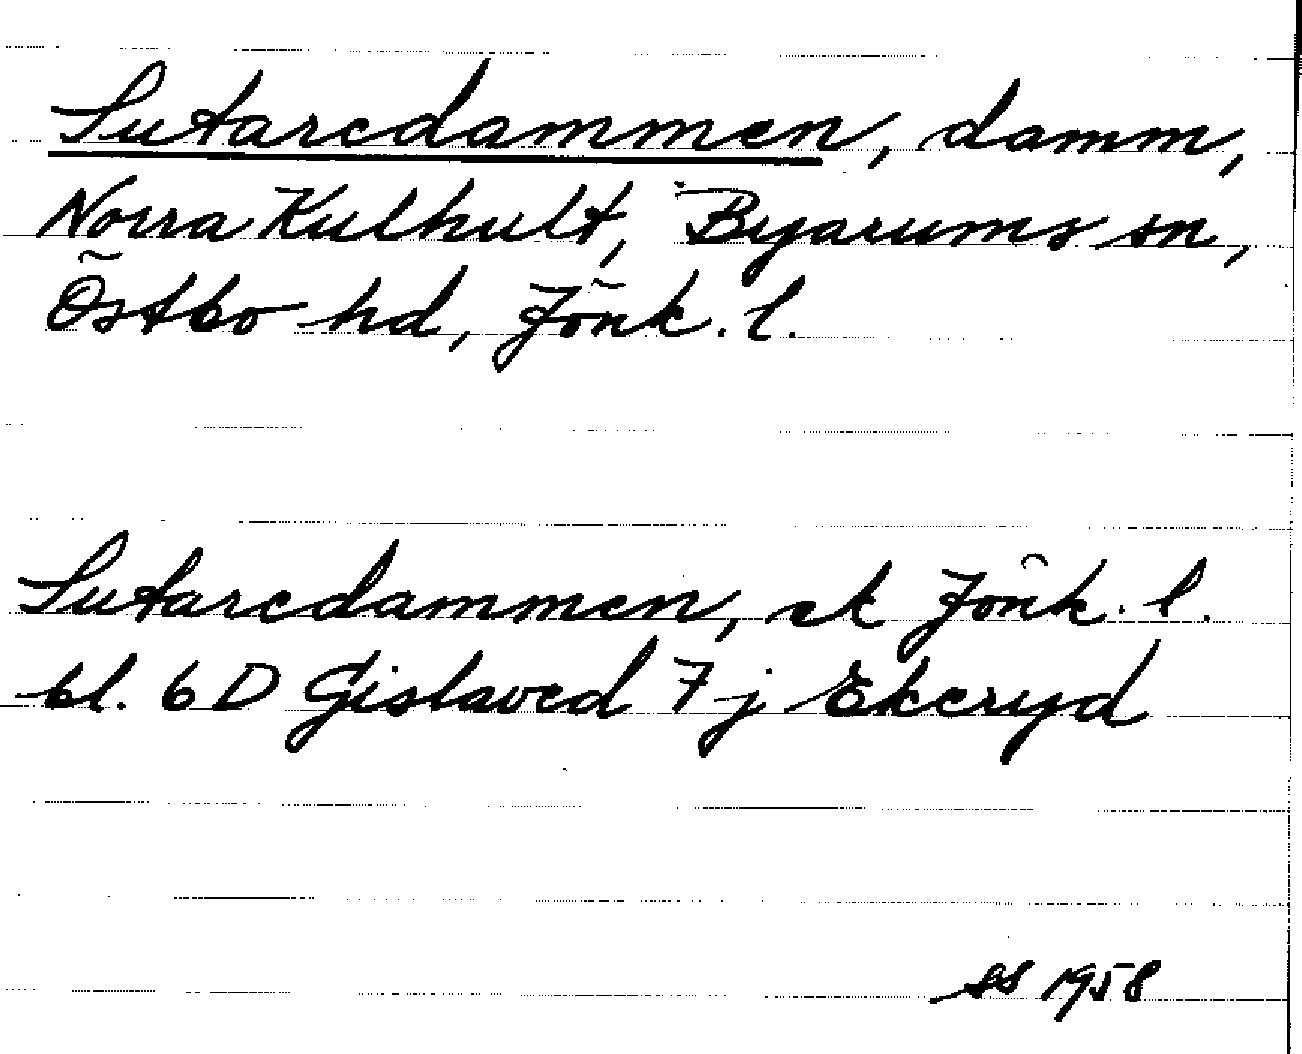 Sutaredammen, damm,
Norra Kulhult, Byarums sn,
Östbo hd, Jönk. l.
Sutaredammen, ek Jönk. l.
bl. 6 D Gislaved 7 j Ekeryd
SS 1958